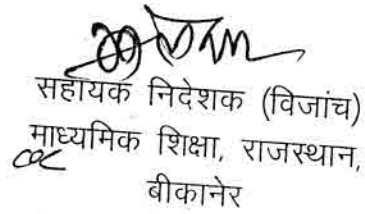 सहायक निदेशक (विजांच)
माध्यमिक शिक्षा, राजस्थान,
बीकानेर